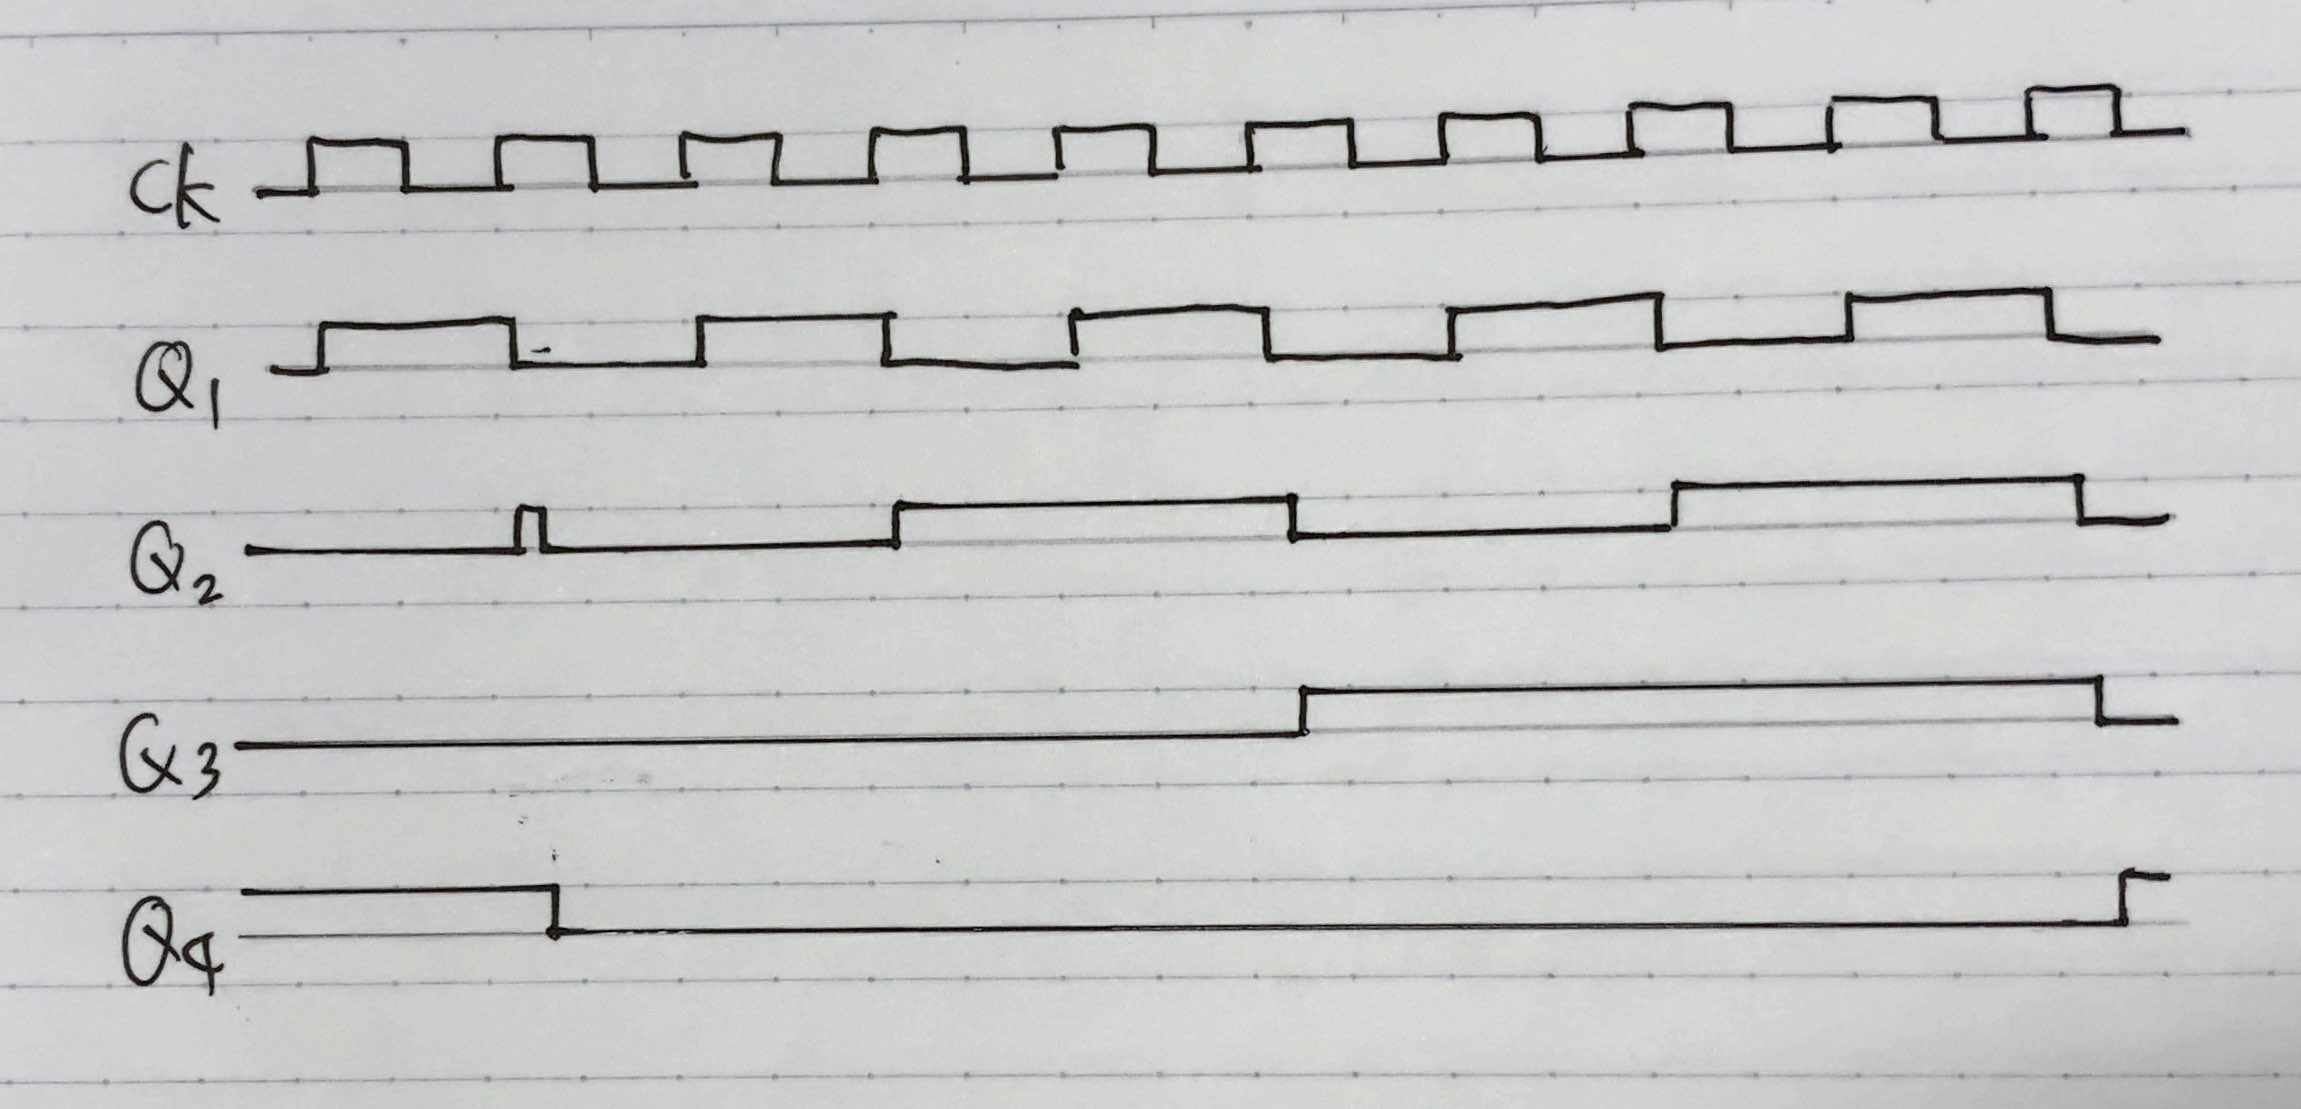 CK
Q1
Q2
Q3
Q4